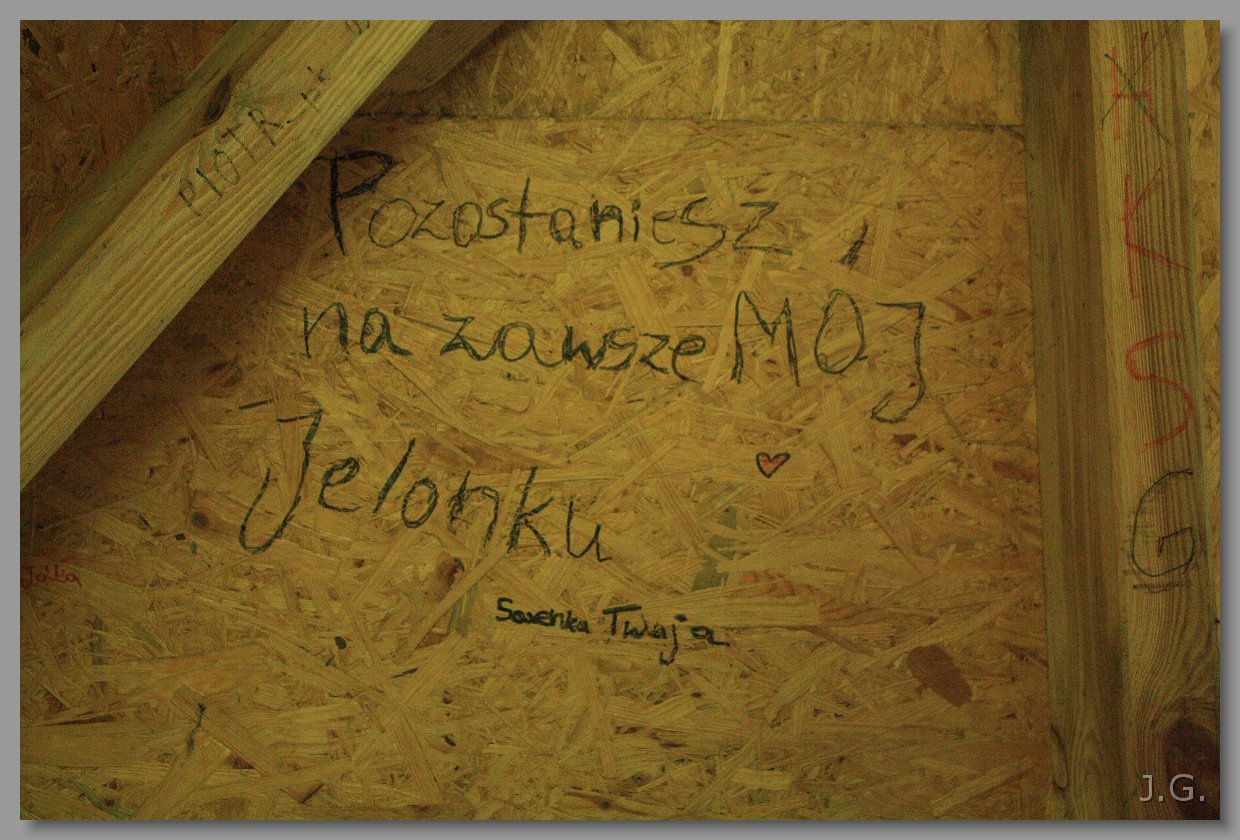 PIOTREK
Pozostaniesz
na zawsze MÓJ
Jelonku
Sarenka Twoja
Julia
G
J.G.